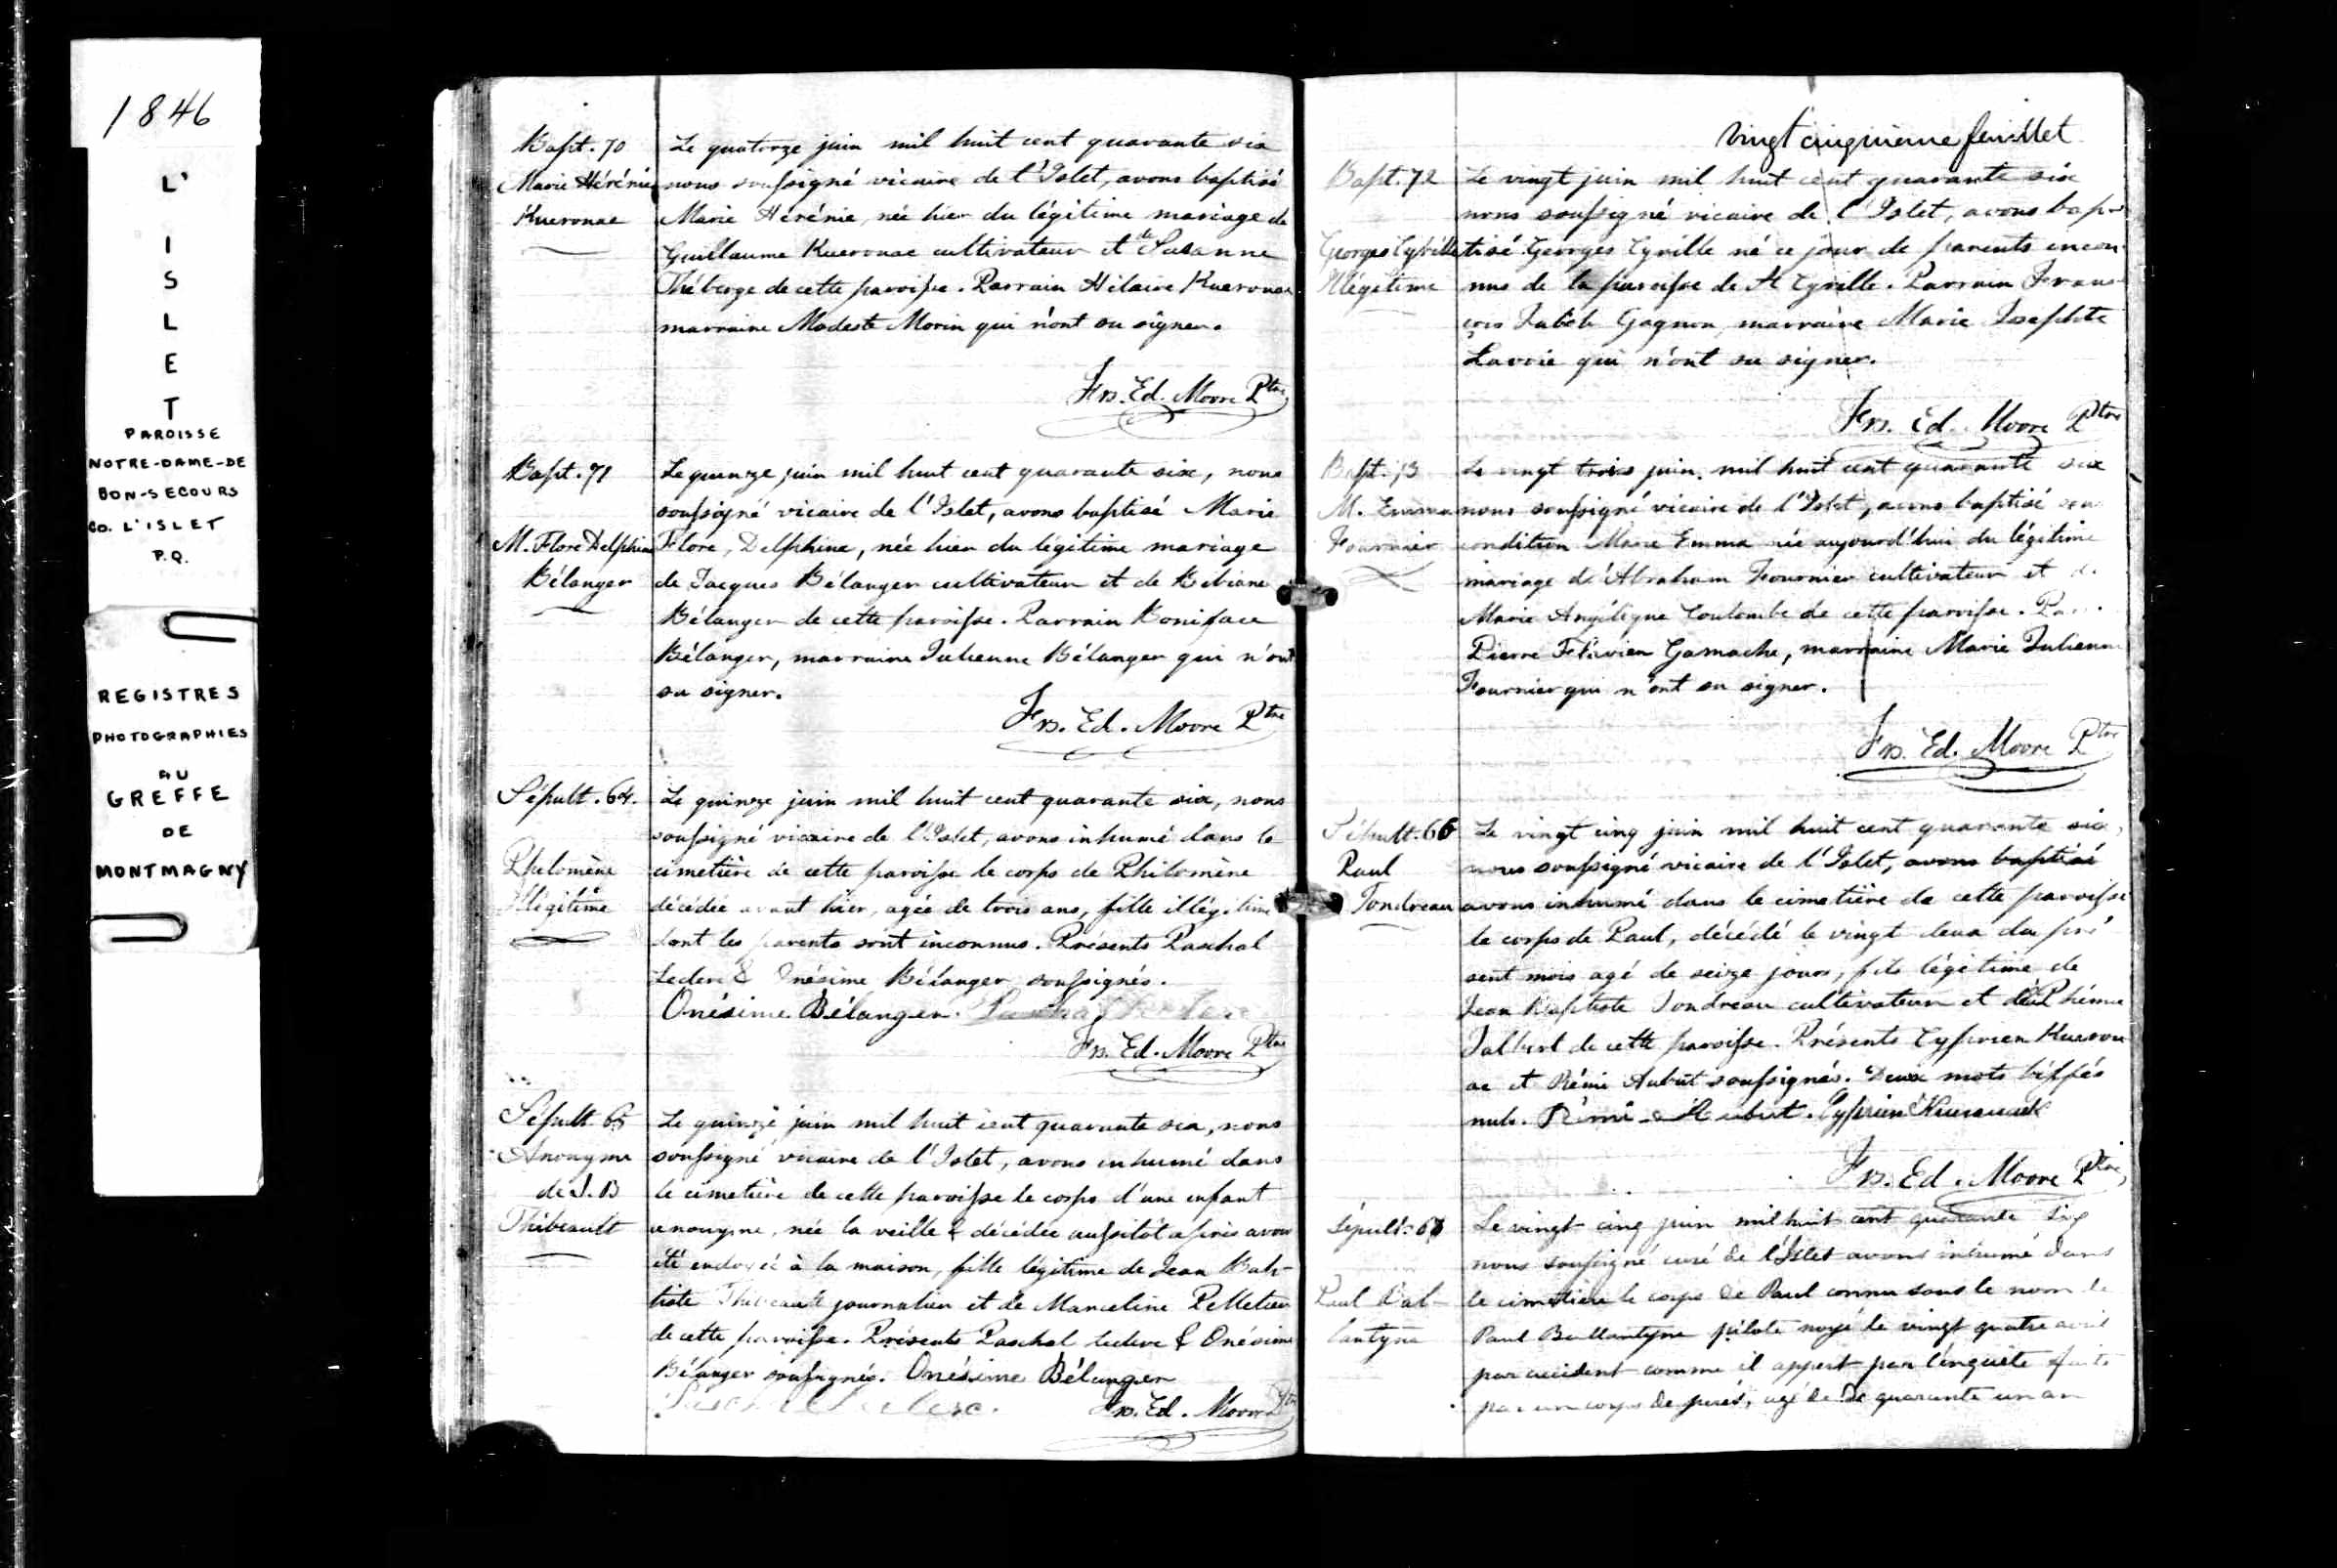 1846
L'
I
S
L
E
T
PAROISSE
NOTRE-DAME-DE
BON-SECOURS
CO. L'ISLET
P.Q.
REGISTRES
PHOTOGRAPHIES
AU
GREFFE
DE
MONTMAGNY
Bapt. 70
Marie Hérénie
Kueronac
Le quatorze juin mil huit cent quarante six
nous soussigné vicaire de l'Islet, avons baptisé
Marie Hérénie, née hier du légitime mariage de
Guillaume Kueronac cultivateur et de Susanne
Théberge de cette paroisse. Parrain Hilaire Kueronac
marraine Modeste Morin qui n'ont su signer.
Frs. Ed. Moore Ptre
Bapt. 71
M. Flore Delphine
Bélanger
Le quinze juin mil huit cent quarante six, nous
soussigné vicaire de l'Islet, avons baptisé Marie
Flore, Delphine, née hier du légitime mariage
de Jacques Bélanger cultivateur et de Bibiane
Bélanger de cette paroisse. Parrain Boniface
Bélanger, marraine Julienne Bélanger qui n'ont
su signer.
Frs. Ed. Moore Ptre
Sépult. 64.
Philomène
Illégitime
Le quinze juin mil huit cent quarante six, nous
soussigné vicaire de l'Islet, avons inhumé dans le
cimetière de cette paroisse le corps de Philomène
décédée avant hier, agée de trois ans, fille illégitime
dont les parents sont inconnus. Présents Paschal
Leclerc & Onésime Bélanger soussignés.
Onésime Bélanger. Paschal Leclerc
Frs. Ed. Moore Ptre
Sépult. 65
Anonyme
de J. B
Thibeault
Le quinze juin mil huit cent quarante six, nous
soussigné vicaire de l'Islet, avons inhumé dans
le cimetière de cette paroisse le corps d'une enfant
anonyme, née la veille & décédée aussitôt après avoir
été ondoyée à la maison, fille légitime de Jean Bap-
tiste Thibeault journalier et de Marceline Pelletier
de cette paroisse. Présents Paschal Leclerc & Onésime
Bélanger soussignés. Onésime Bélanger
Paschal Leclerc. Frs. Ed. Moore Ptre
vingt cinquieme feuillet
Bapt. 72
Georges Cyrille
Illégitime
Le vingt juin mil huit cent quarante six
nous soussigné vicaire de l'Islet, avons bap-
tisé Georges Cyrille né ce jour de parents incon-
nus de la paroisse de St Cyrille. Parrain Fran-
çois Gagnon, marraine Marie Josephte
Lavoie qui n'ont su signer.
Frs. Ed. Moore Ptre
Bapt. 73
M. Emma
Fournier
Le vingt trois juin mil huit cent quarante six
nous soussigné vicaire de l'Islet, avons baptisé sou
condition Marie Emma née aujourd'hui du légitime
mariage d'Abraham Fournier cultivateur et de
Marie Angélique Coulombe de cette paroisse. Par.
Pierre Flavien Gamache, marraine Marie Julienne
Fournier qui n'ont su signer.
Frs. Ed. Moore Ptre
Sépult. 66
Paul
Tondreau
Le vingt cinq juin mil huit cent quarante six,
nous soussigné vicaire de l'Islet, avons baptisé
avons inhumé dans le cimetière de cette paroisse
le corps de Paul, décédé le vingt deux du pré
sent mois agé de seize jours, fils légitime de
Jean Baptiste Tondreau cultivateur et de
Jalbert de cette paroisse. Présents Cyprien Kueron
ac et Rémi Aubut soussignés. Deux mots biffés
nuls. Rémi Aubut. Cyprien Kueronack
Frs. Ed. Moore Ptre
Sépult. 67
Paul Bal-
lantyne
Le vingt cinq juin mil huit cent quarante six
nous soussigné curé de l'Islet avons inhumé dans
le cimetière le corps de Paul connu sous le nom de
Paul Ballantyne pilote noyé le vingt quatre avril
par accident comme il appert par l'enquête faite
par un corps de jurés, agé de de quarante un an